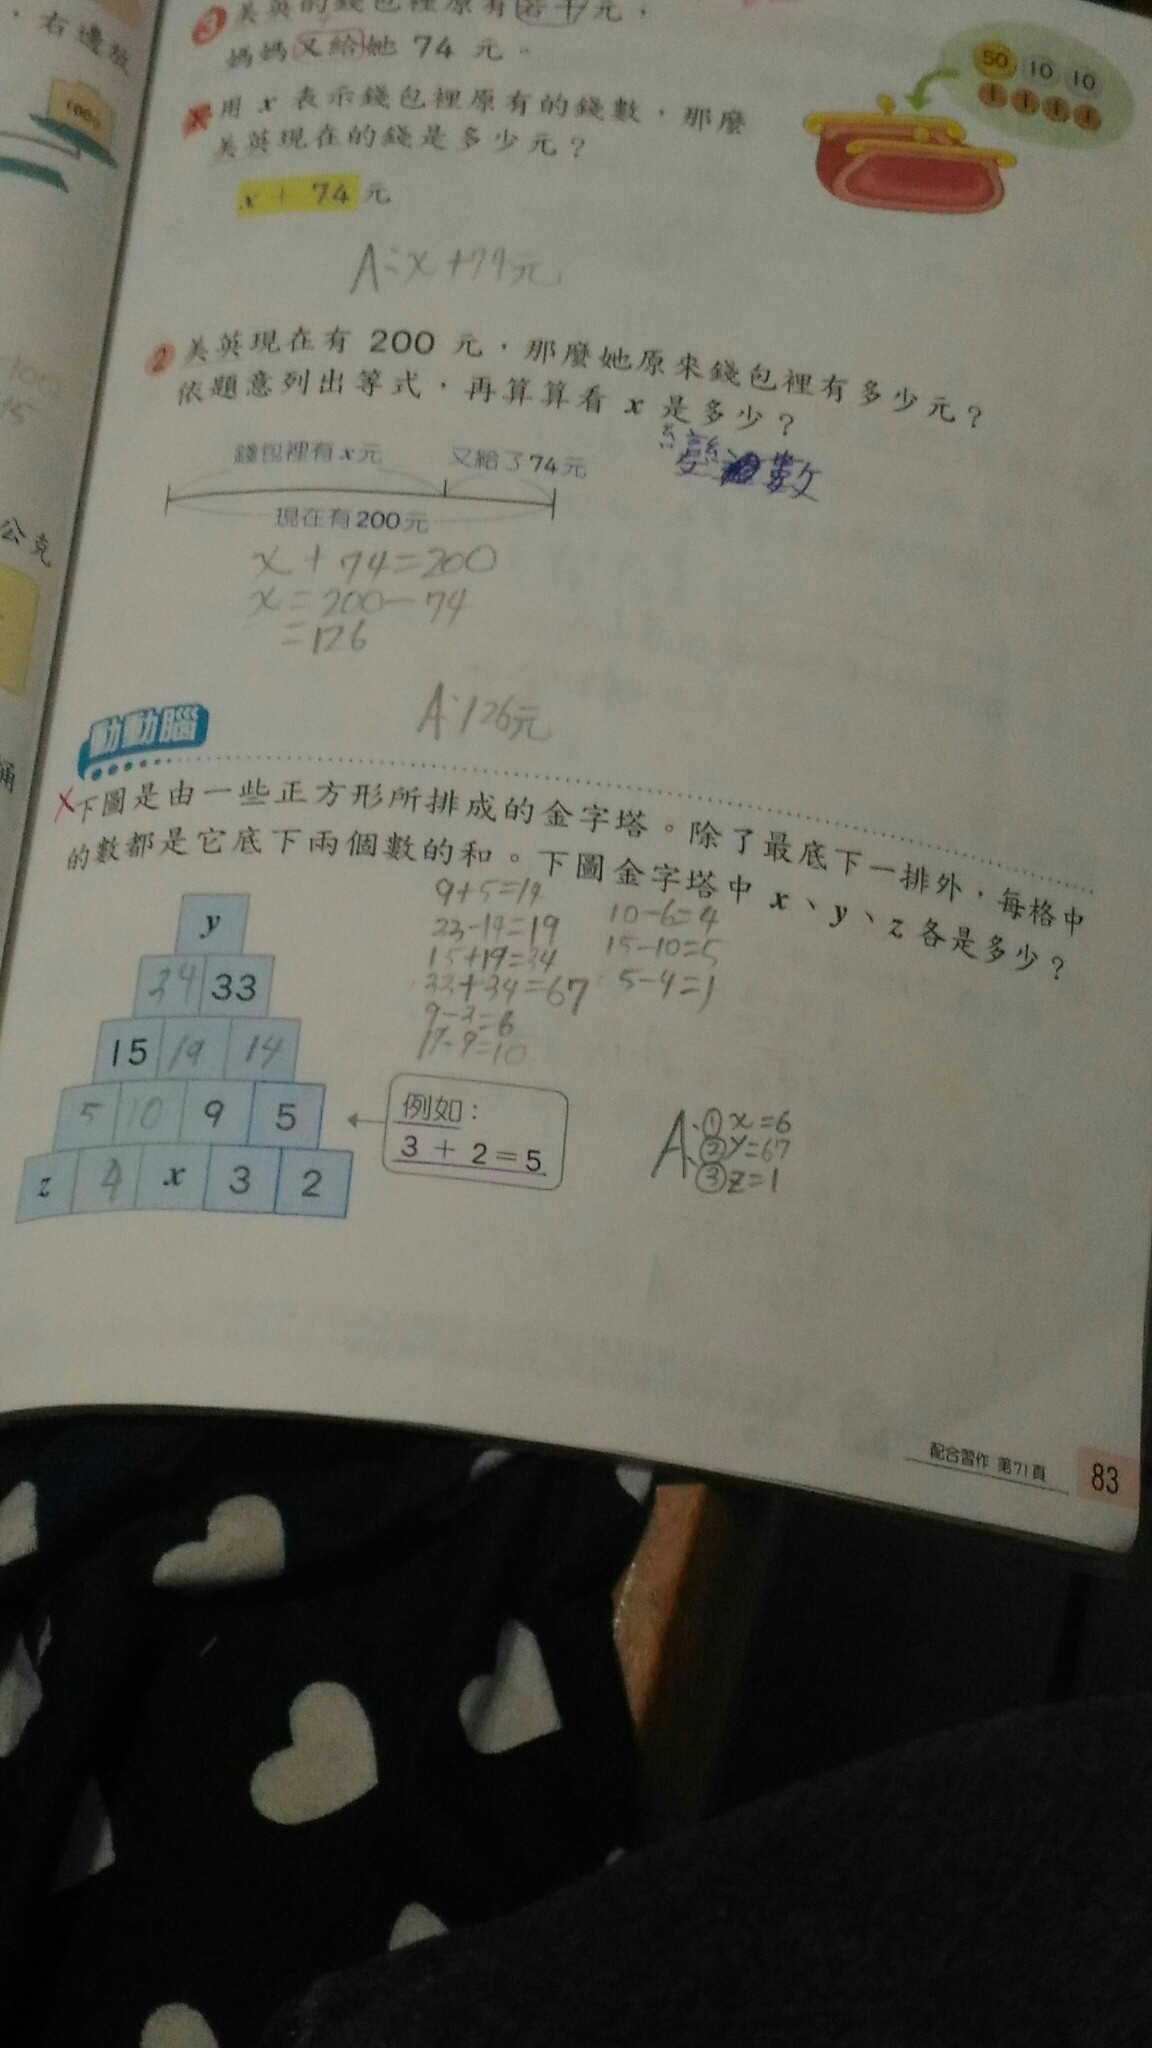 右邊放
1000
③ 美英的錢包裡原有若干元，
媽媽又給她 74 元。
用 x 表示錢包裡原有的錢數，那麼
美英現在的錢是多少元？
50 10 10
1 1 1 1
x + 74 元
A:x+74元
② 美英現在有 200 元，那麼她原來錢包裡有多少元？
依題意列出等式，再算算看 x 是多少？
變數
錢包裡有x元 又給了74元
現在有200元
x+74=200
x=200-74
=126
A:126元
公克
動動腦
下圖是由一些正方形所排成的金字塔。除了最底下一排外，每格中
的數都是它底下兩個數的和。下圖金字塔中 x、y、z 各是多少？
9+5=14
33-14=19
15+19=34
33+34=67
9-3=6
10-6=4
15-10=5
5-4=1
y
34 33
15 19 14
5 10 9 5
z 4 x 3 2
例如：
3 + 2 = 5
A:①x=6
②y=67
③z=1
配合習作 第71頁
83